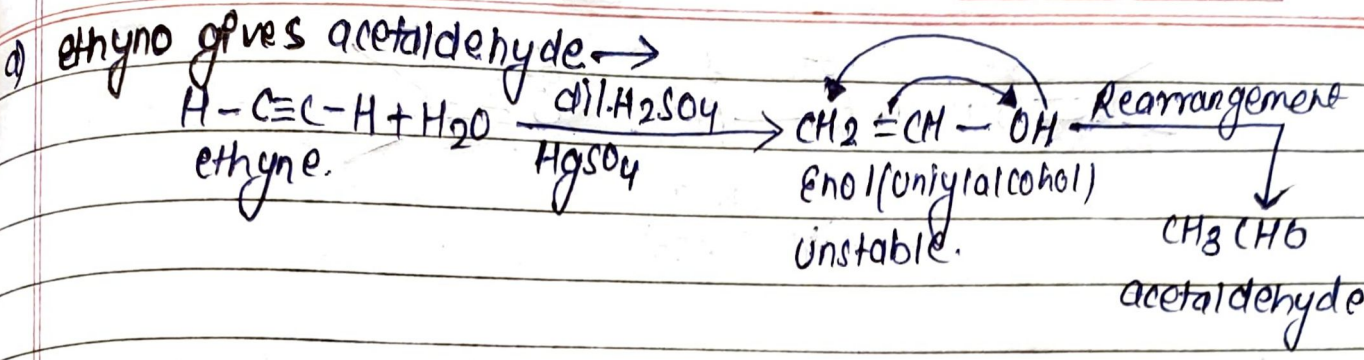 a) ethyno gives acetaldehyde →
H-C≡C-H + H2O dil.H2SO4 HgSO4 → CH2=CH-OH Rearrangement
ethyne. Enol (vniylalcohol)
unstable. CH3CHO
acetaldehyde